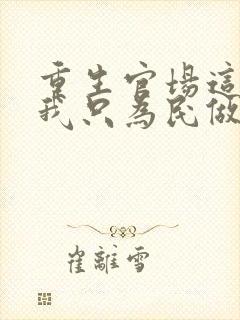 重生官場這
我只為民做
崔離雪